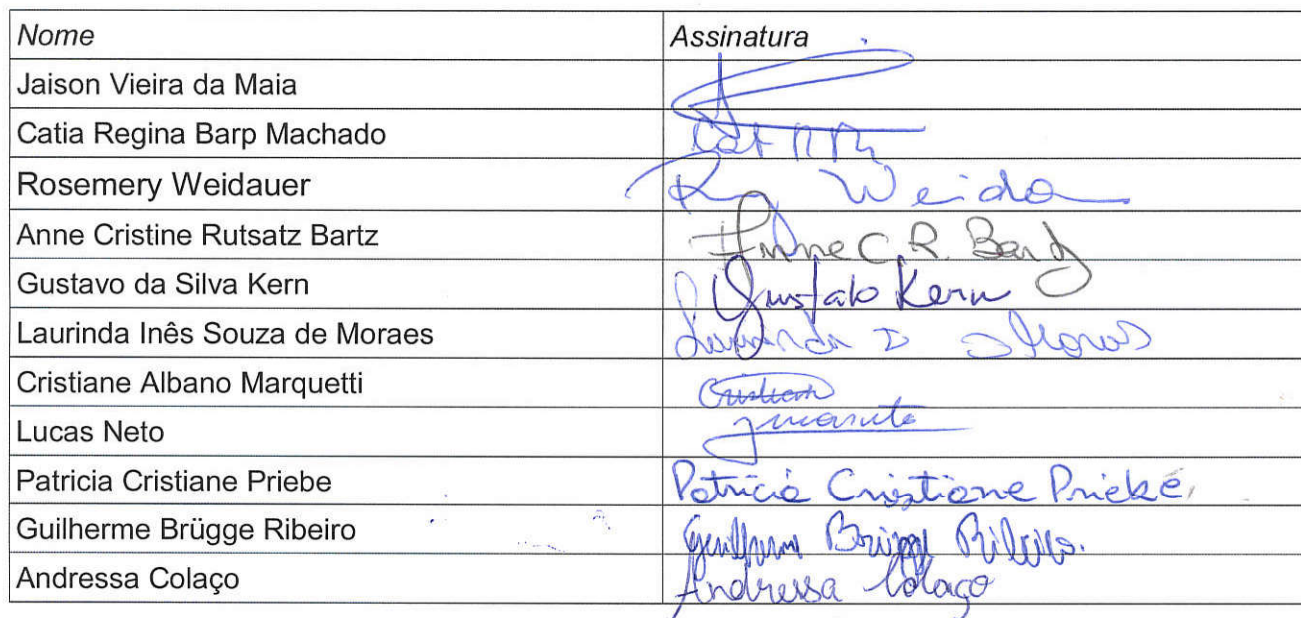 Nome Assinatura
Jaison Vieira da Maia
Catia Regina Barp Machado
Rosemery Weidauer Weida
Anne Cristine Rutsatz Bartz Anne C. R. Bartz
Gustavo da Silva Kern Gustavo Kern
Laurinda Inês Souza de Moraes Laurinda I
Cristiane Albano Marquetti
Lucas Neto
Patricia Cristiane Priebe Patricia Cristiane Priebe
Guilherme Brügge Ribeiro Guilherme Brügge Ribeiro.
Andressa Colaço Andressa Colaço